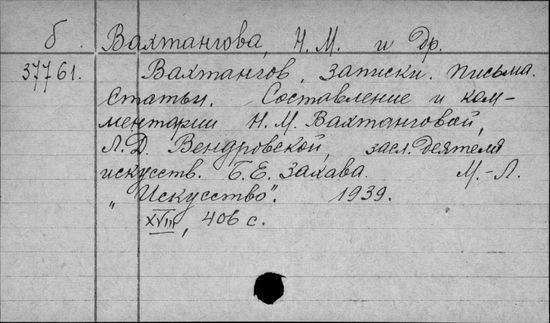 б. Вахтангова, Н. М. и др.
37761. Вахтангов. Записки. Письма.
Статьи. Составление и ком-
ментарии Н. М. Вахтанговой,
Л. Д. Вендровской, засл. деятеля
искусств. Б. Е. Захава. М.-Л.
"Искусство". 1939.
XVIII, 406 с.